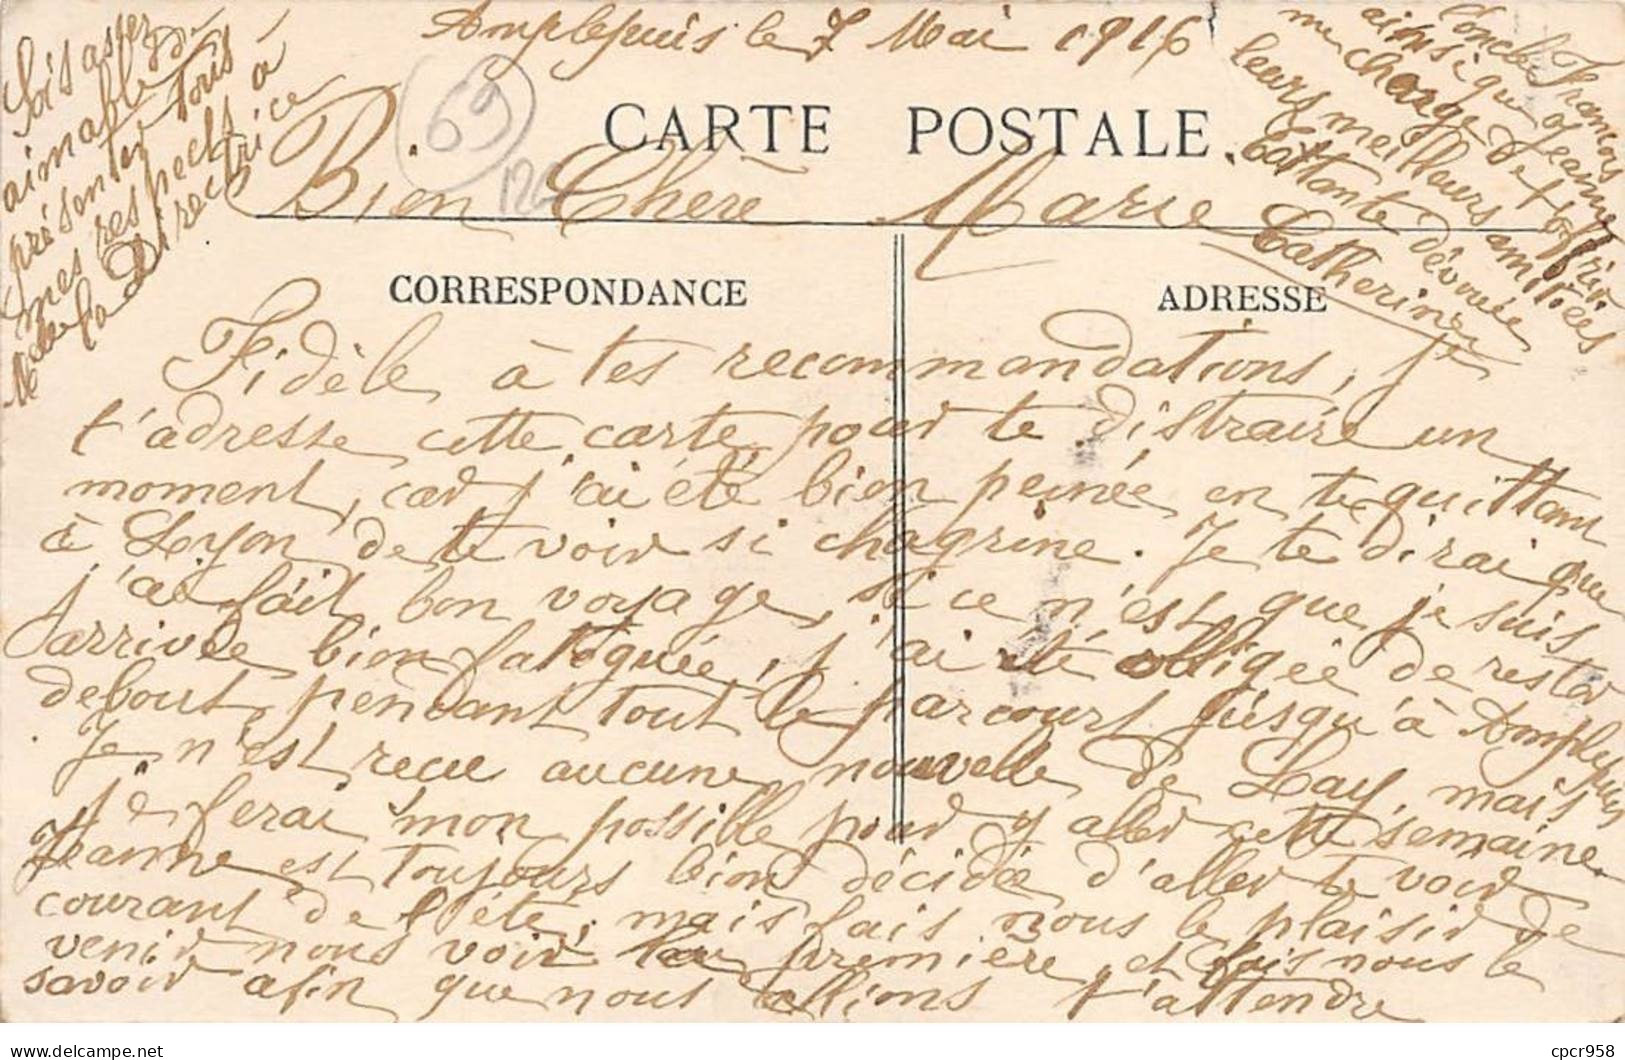 Amplepuis le 7 Mai 1916
CARTE POSTALE
69
Bien Chère Marie
CORRESPONDANCE
ADRESSE
Fidèle à tes recommandations, je
t'adresse cette carte pour te distraire un
moment, car j'ai été bien peinée en te quittant
à Lyon de te voir si chagrine. Je te dirai que
j'ai fait bon voyage, si ce n'est que je suis
arrivée bien fatiguée, j'ai été obligée de rester
debout pendant tout le parcourt jusqu'à Amplepuis
Je n'est recu aucune nouvelle de Lay, mais
je ferai mon possible pour y aller cette semaine.
Jeanne est toujours bien décidée d'aller te voir
courant de l'été, mais fais nous le plaisir de
venir nous voir la première, et fais nous le
savoir afin que nous allions t'attendre
l'oncle François
ainsi que Jeanne
me charge de t'offrir
leurs meilleurs amitiés
Ta tante dévouée
Catherine
Sois assez
aimable de
présenter tous
mes respects à
Melle la Directrice
cpcr958